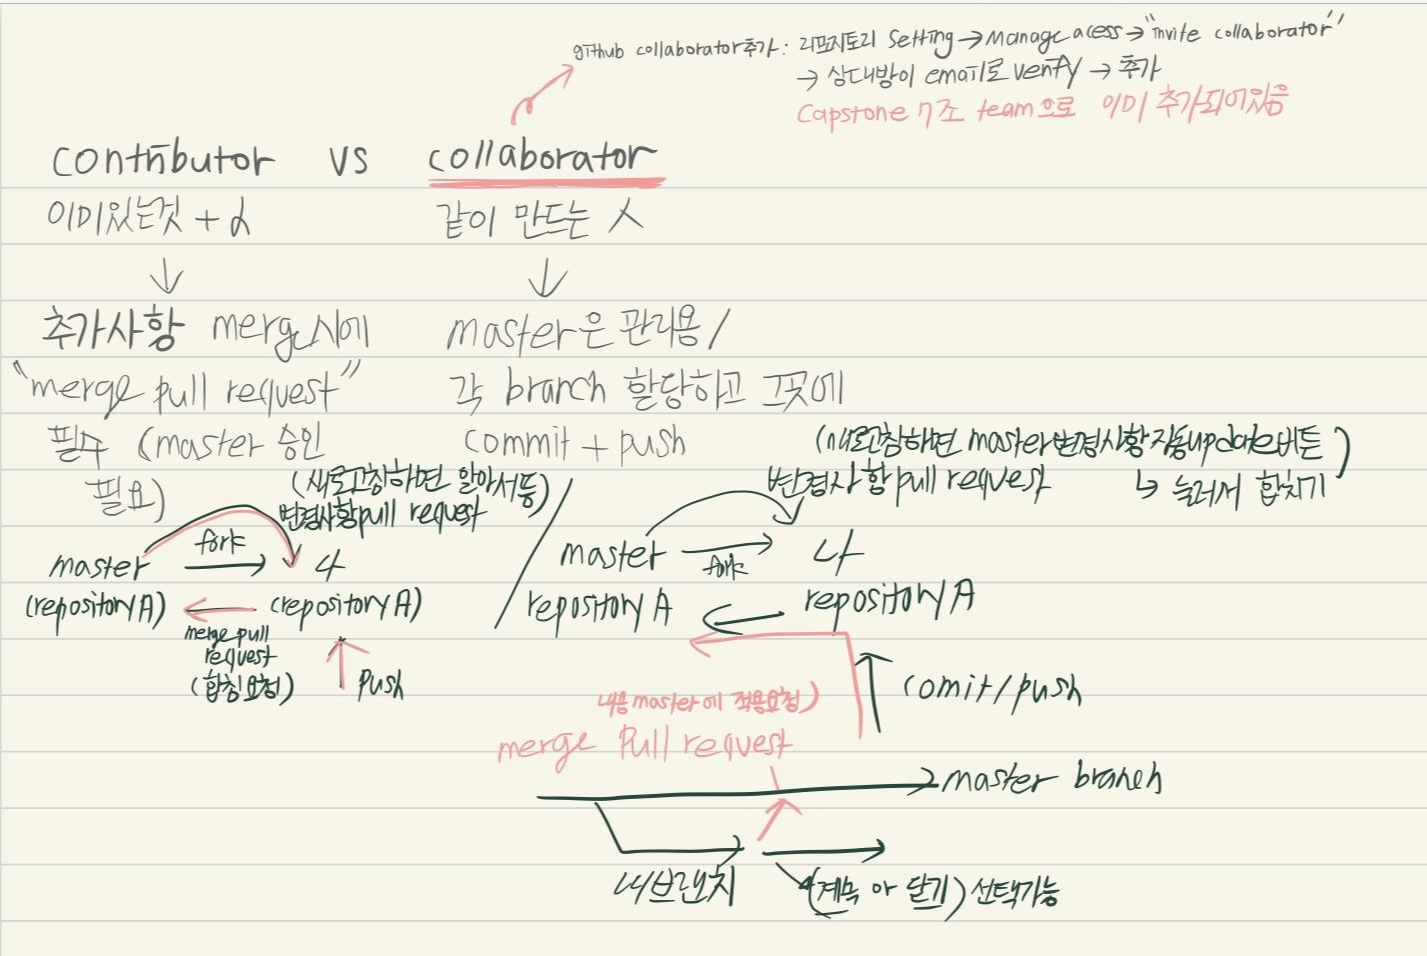 github collaborator추가 : 리포지토리 Setting → Manage acess → "invite collaborator"
→ 상대방이 email로 verify → 추가
Capstone 7조 team으로 이미 추가되어있음
contributor vs collaborator
이미있는것 + α
같이 만드는 人
↓
↓
추가사항 merge시에
"merge pull request"
필수 (master 승인
필요)
master은 관리용 /
각 branch 할당하고 그곳에
commit + push
(새로고침하면 알아서뜸)
변경사항pull request
master fork → 나
(repository A) ← (repository A)
merge pull
request
(합침요청)
push
(새로고침하면 master변경사항 자동update버튼)
↳ 눌러서 합치기
변경사항pull request
master fork → 나
repository A ← repository A
comit/push
내용master에 적용요청)
merge Pull request
master branch
내브랜치
(계속 or 닫기) 선택가능